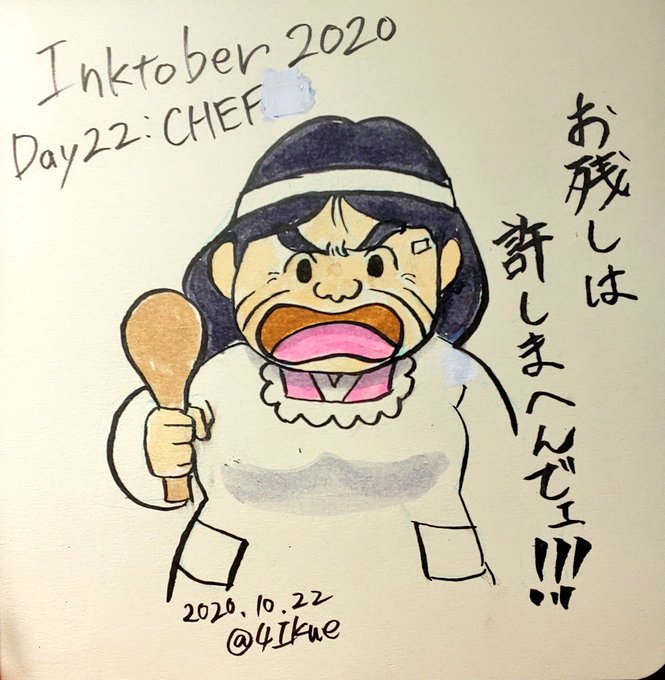 Inktober 2020
Day22: CHEF
お残しは
許しまへんでェ!!!
2020.10.22
@4Ikue